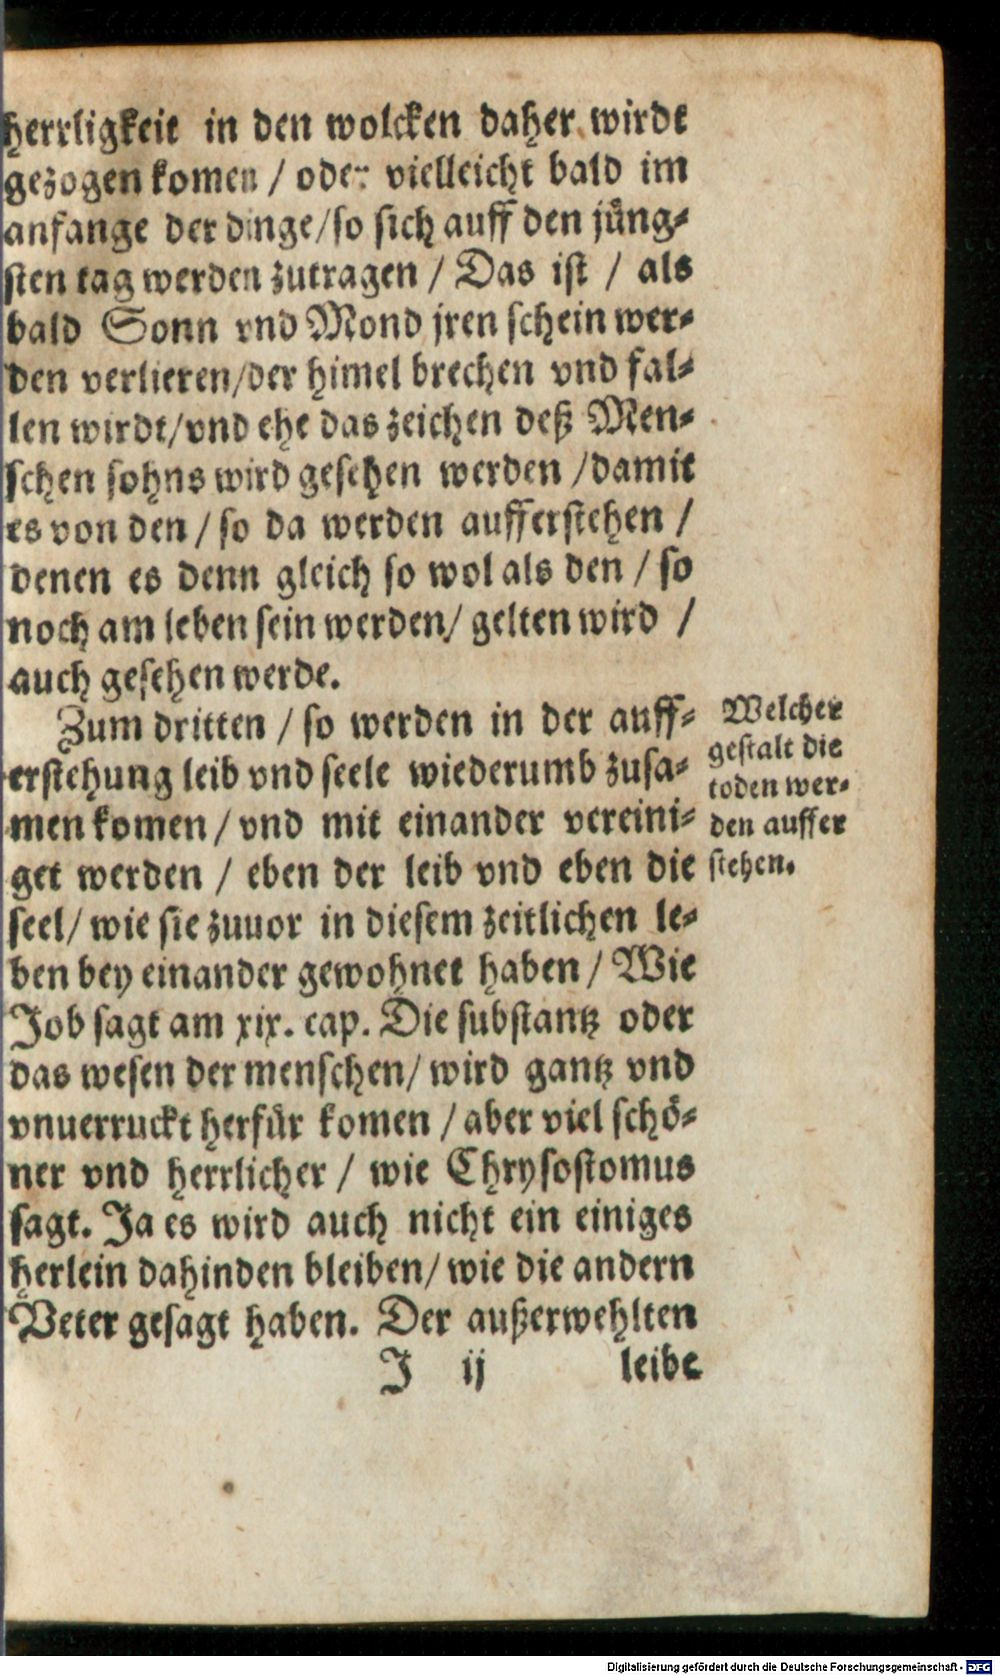 herrligkeit in den wolcken daher wirdt
gezogen komen / oder vielleicht bald im
anfange der dinge/so sich auff den jüng-
sten tag werden zutragen / Das ist / als
bald Sonn vnd Mond jren schein wer-
den verlieren/der himel brechen vnd fal-
len wirdt/vnd ehe das zeichen deß Men-
schen sohns wird gesehen werden /damit
es von den / so da werden aufferstehen /
denen es denn gleich so wol als den / so
noch am leben sein werden/ gelten wird /
auch gesehen werde.
Zum dritten / so werden in der auff-
erstehung leib vnd seele wiederumb zusa-
men komen / vnd mit einander vereini-
get werden / eben der leib vnd eben die
seel/ wie sie zuuor in diesem zeitlichen le-
ben bey einander gewohnet haben / Wie
Job sagt am xix. cap. Die substantz oder
das wesen der menschen/ wird gantz vnd
vnuerruckt herfür komen / aber viel schö-
ner vnd herrlicher / wie Chrysostomus
sagt. Ja es wird auch nicht ein einiges
herlein dahinden bleiben/ wie die andern
Veter gesagt haben. Der außerwehlten
J ij leibe
Welcher
gestalt die
toden wer-
den auffer
stehen.
Digitalisierung gefördert durch die Deutsche Forschungsgemeinschaft - DFG